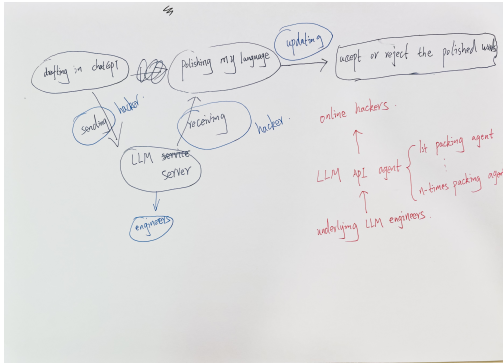 drafting in chatGPT
polishing my language
updating
accept or reject the polished words
sending
hacker
receiving
hacker.
LLM service
server
engineers
online hackers.
LLM API agent
1st packing agent
n-times packing agent
underlying LLM engineers.